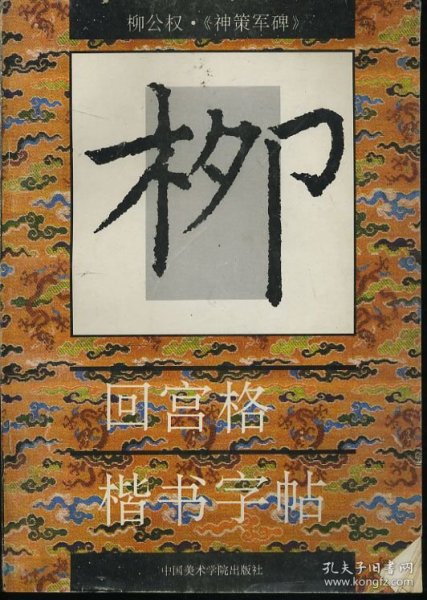 柳公权·《神策军碑》
柳
回宫格
楷书字帖
中国美术学院出版社
孔夫子旧书网
www.kongfz.com